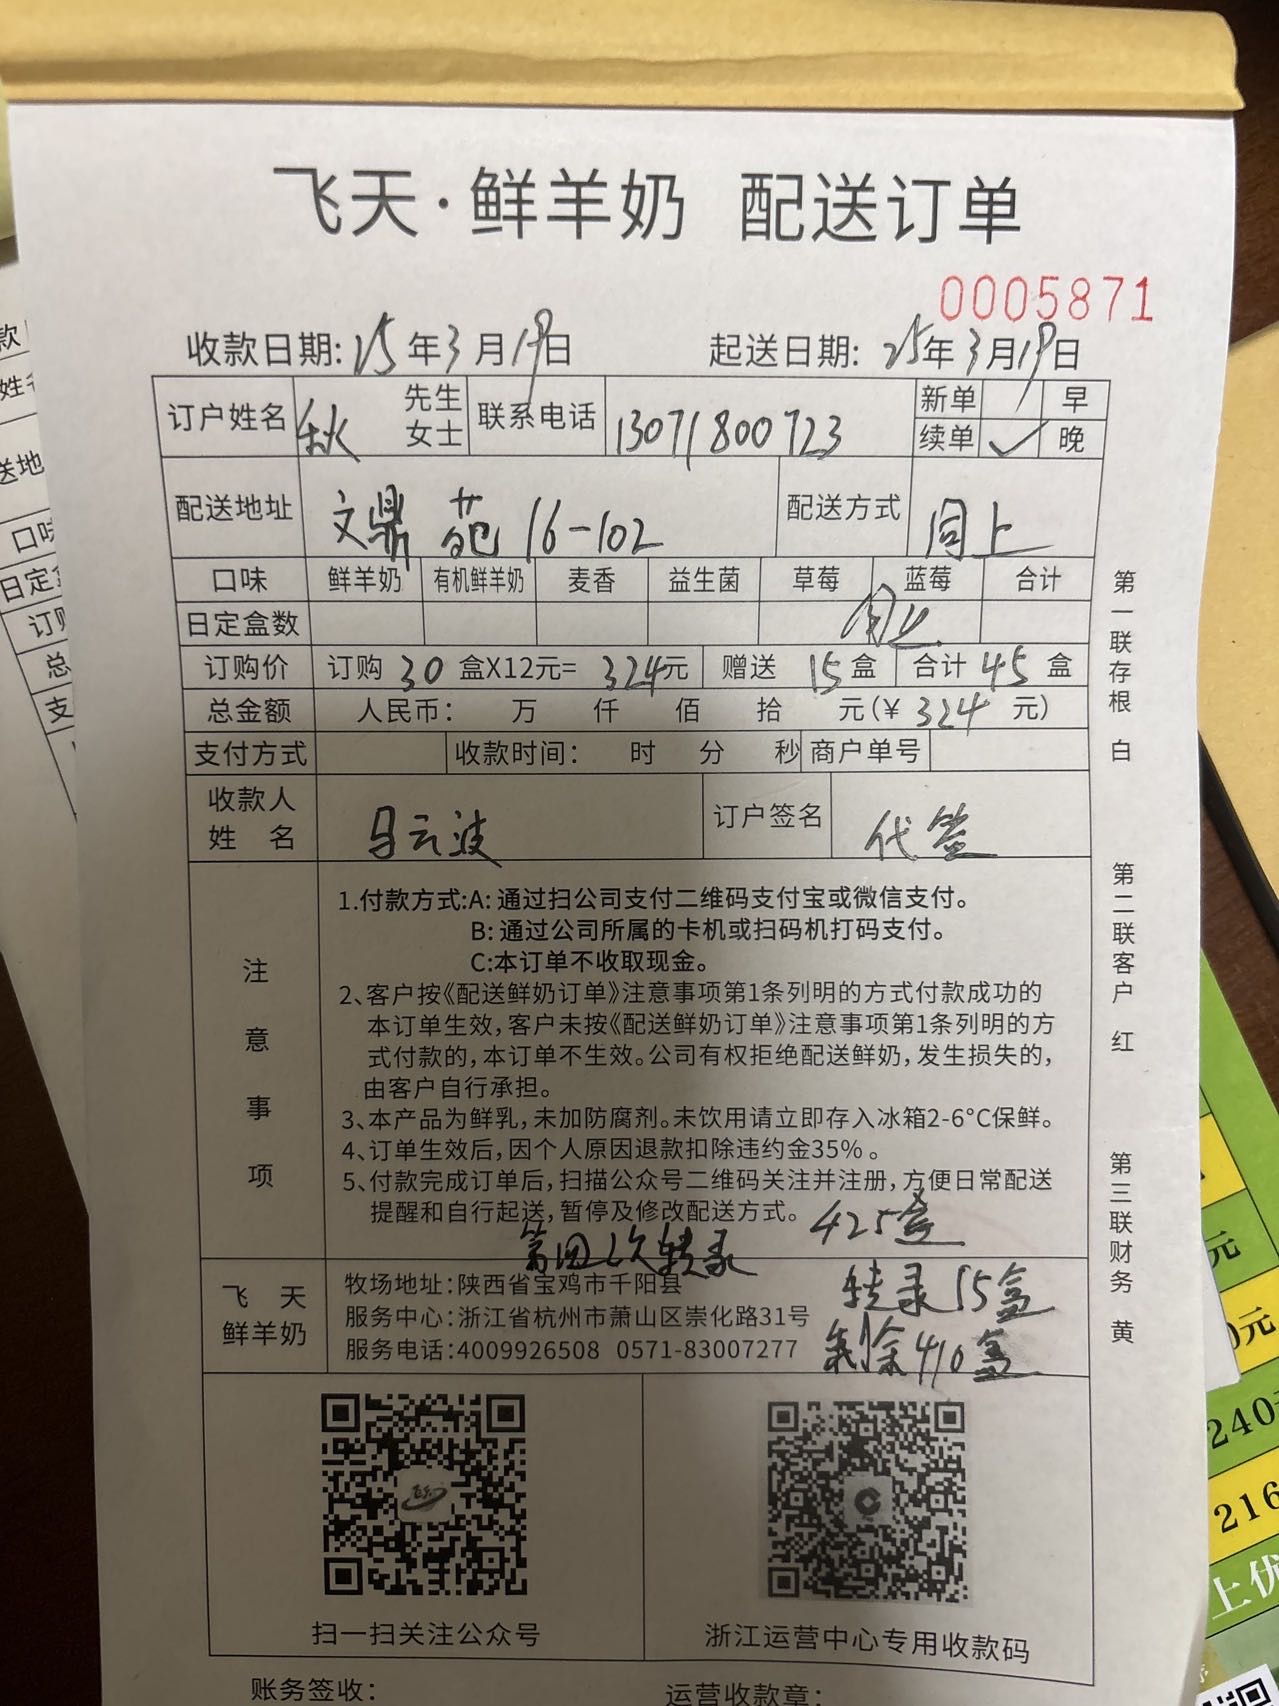 飞天·鲜羊奶 配送订单
0005871
收款日期: 25年3月19日 起送日期: 25年3月19日
订户姓名 秋 先生 女士 联系电话 13071800723 新单 早
续单 ✓ 晚
配送地址 文鼎苑 16-102 配送方式 同上
口味 鲜羊奶 有机鲜羊奶 麦香 益生菌 草莓 蓝莓 合计
日定盒数 同上
订购价 订购 30 盒X12元= 324元 赠送 15盒 合计 45 盒
总金额 人民币: 万 仟 佰 拾 元(¥ 324 元)
支付方式 收款时间: 时 分 秒 商户单号
收款人姓 名 马云波 订户签名 代签
注意事项
1.付款方式:A: 通过扫公司支付二维码支付宝或微信支付。
B: 通过公司所属的卡机或扫码机打码支付。
C:本订单不收取现金。
2、客户按《配送鲜奶订单》注意事项第1条列明的方式付款成功的
本订单生效,客户未按《配送鲜奶订单》注意事项第1条列明的方
式付款的,本订单不生效。公司有权拒绝配送鲜奶,发生损失的,
由客户自行承担。
3、本产品为鲜乳,未加防腐剂。未饮用请立即存入冰箱2-6°C保鲜。
4、订单生效后,因个人原因退款扣除违约金35%。
5、付款完成订单后,扫描公众号二维码关注并注册,方便日常配送
提醒和自行起送,暂停及修改配送方式。 425盒
第四次转录
飞 天
鲜羊奶
牧场地址:陕西省宝鸡市千阳县 转录15盒
服务中心:浙江省杭州市萧山区崇化路31号
服务电话:4009926508 0571-83007277 剩余410盒
扫一扫关注公众号 浙江运营中心专用收款码
账务签收: 运营收款章:
第一联存根 白
第二联客户 红
第三联财务 黄
元
0元
240
216
上优